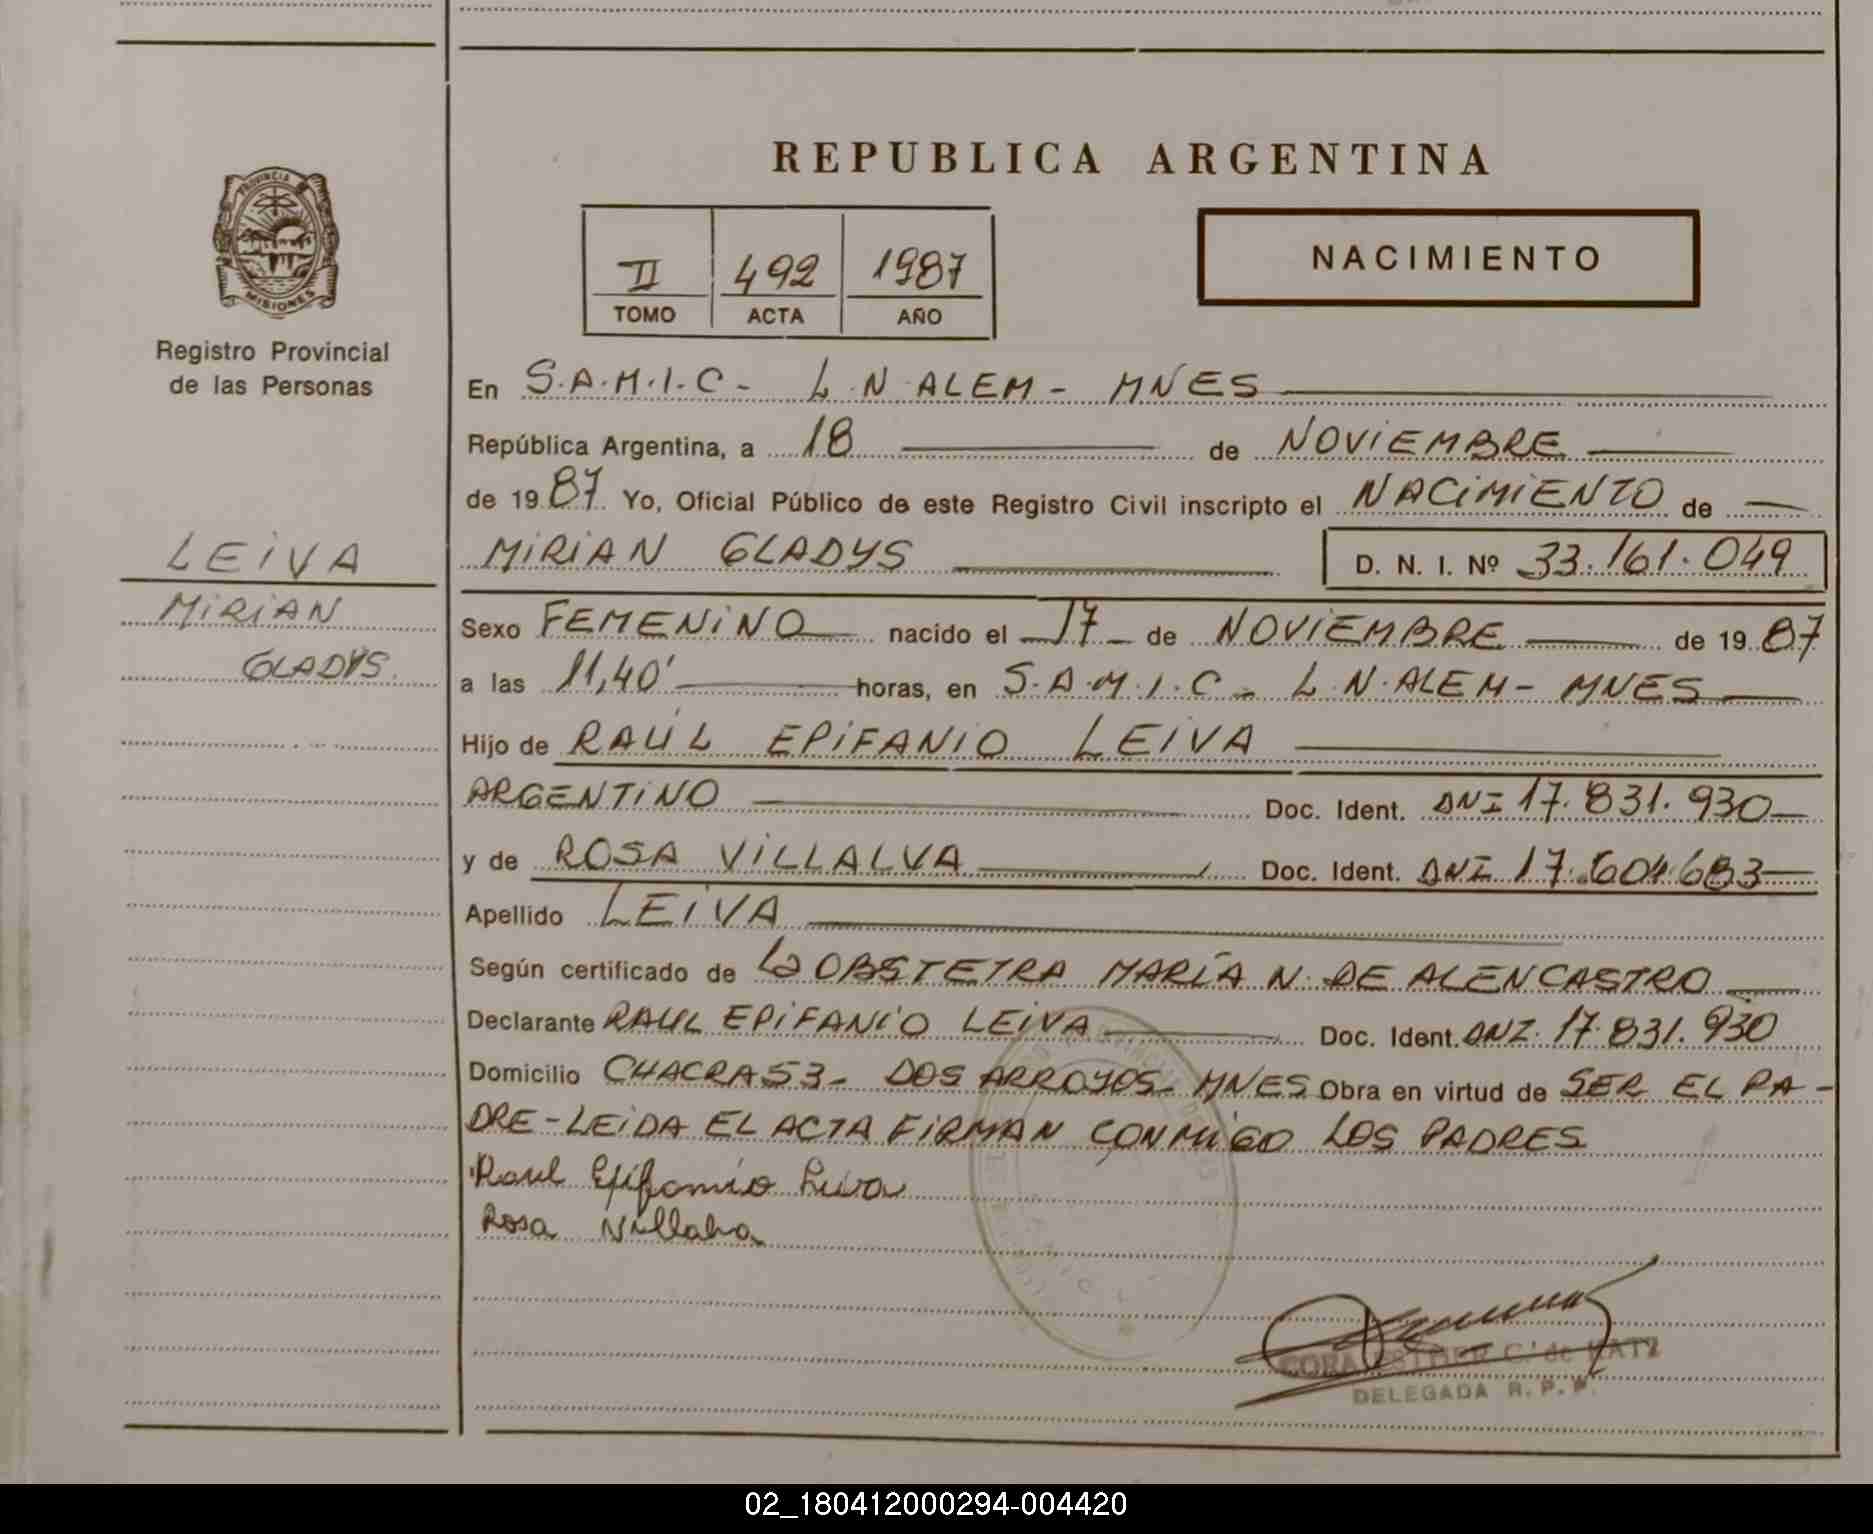 PROVINCIA
MISIONES
Registro Provincial
de las Personas
LEIVA
MIRIAN
GLADYS.
REPUBLICA ARGENTINA
II 492 1987
TOMO ACTA AÑO
NACIMIENTO
En S.A.M.I.C- L.N.ALEM- MNES
República Argentina, a 18 de NOVIEMBRE
de 1987. Yo, Oficial Público de este Registro Civil inscripto el NACIMIENTO de
MIRIAN GLADYS D. N. I. Nº 33.161.049
Sexo FEMENINO nacido el 17 de NOVIEMBRE de 1987
a las 11,40' horas, en S.A.M.I.C- L.N.ALEM- MNES
Hijo de RAÚL EPIFANIO LEIVA
ARGENTINO Doc. Ident. DNI 17.831.930
y de ROSA VILLALVA Doc. Ident. DNI 17.604.683
Apellido LEIVA
Según certificado de La OBSTETRA MARÍA N. DE ALENCASTRO
Declarante RAUL EPIFANIO LEIVA Doc. Ident. DNI. 17.831.930
Domicilio CHACRA 53- DOS ARROYOS- MNES Obra en virtud de SER EL PA-
DRE-LEIDA EL ACTA FIRMAN CONMIGO LOS PADRES
Raul Epifanio Leiva
Rosa Villalva
CORA ESTHER C. de KATZ
DELEGADA R. P. P.
02_180412000294-004420